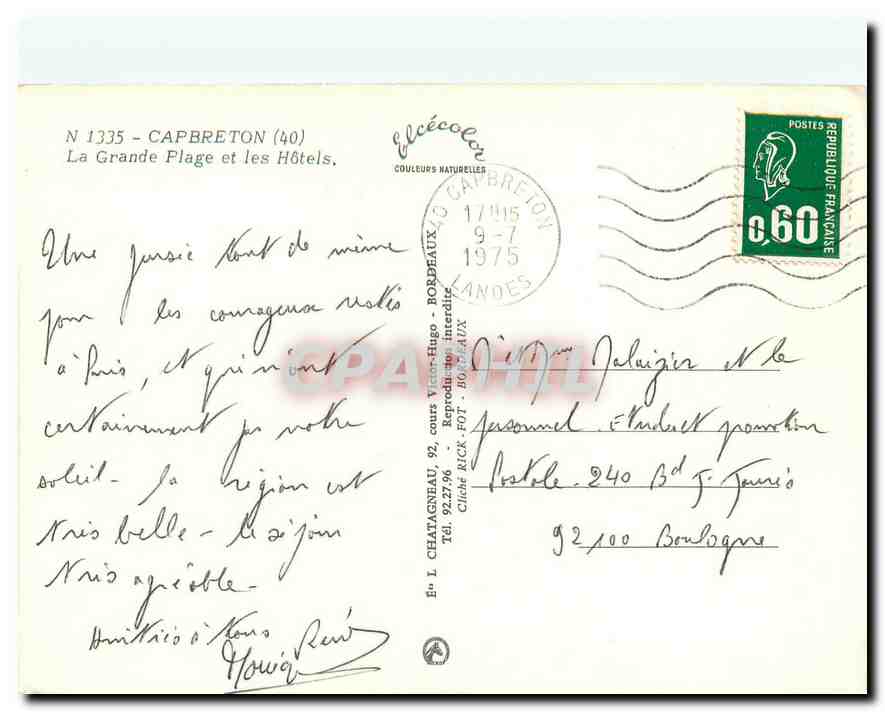 N 1335 - CAPBRETON (40)
La Grande Plage et les Hôtels.
Elcécolor
COULEURS NATURELLES
40 CAPBRETON
17H15
9-7
1975
LANDES
POSTES
REPUBLIQUE FRANÇAISE
0,60
Une pensée tout de même
pour les courageux restés
à Paris, et qui n'ont
certainement pas notre
soleil - la région est
très belle - le séjour
très agréable -
Amitiés à tous
René
Monique
Éts L. CHATAGNEAU, 92, cours Victor-Hugo - BORDEAUX
Tél. 92.27.96 - Reproduction interdite
Cliché RICK-FOT - BORDEAUX
Mr et Mme Malaizier et le
personnel. Etude et promotion
Postale - 240 Bd J. Jaurès
92100 Boulogne
CPARHIL